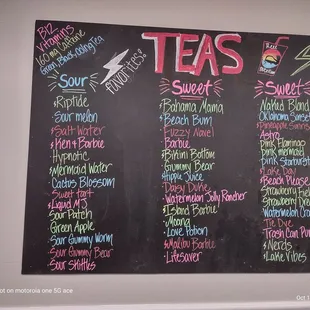 B12
Vitamins
160 mg Caffeine
Green, Black, Oolong Tea
favorites!
TEAS
Sour
Riptide
Sour melon
Salt Water
Ken & Barbie
Hypnotic
Mermaid Water
Cactus Blossom
Sweet Tart
Liquid MJ
Sour Patch
Green Apple
Sour Gummy Worm
Sour Gummy Bear
Sour Skittles
Sweet
Bahama Mama
Beach Bum
Fuzzy Navel
Barbie
Bikini Bottom
Gummy Bear
Hippie Juice
Daisy Duke
Watermelon Jolly Rancher
Island Barbie
Moana
Love Potion
Malibu Barbie
Lifesaver
Sweet
Naked Blond
Oklahoma Sunse
Pineapple
Astro
Pink Flamingo
Pink mermaid
Pink Starburst
Lake Day
Beach Please
Strawberry
Strawberry Dre
Watermelon Cra
Tie Dye
Trash Can Pu
Nerds
Lake Vibes
ot on motorola one 5G ace
Oct 1